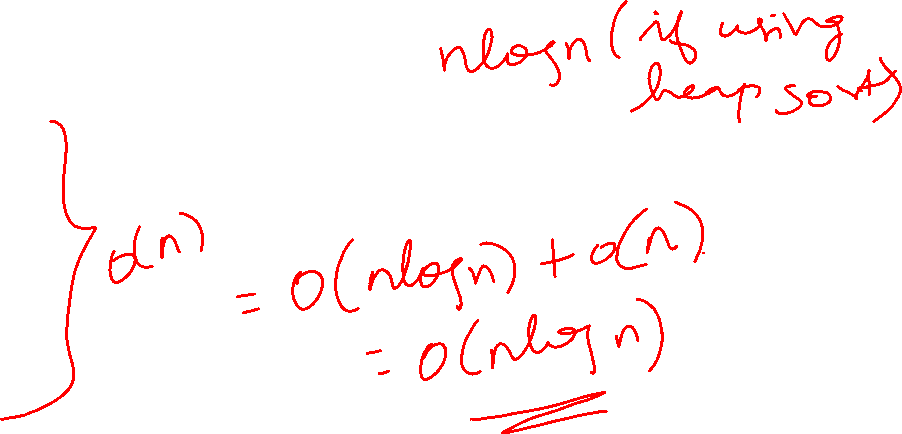 nlogn (if using
heap sort)
O(n)
= O(nlogn) + O(n)
= O(nlog n)